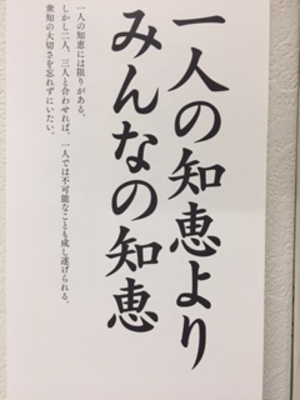 一人の知恵より
みんなの知恵
一人の知恵には限りがある。
しかし二人、三人と合わせれば、一人では不可能なことも成し遂げられる。
衆知の大切さを忘れずにいたい。